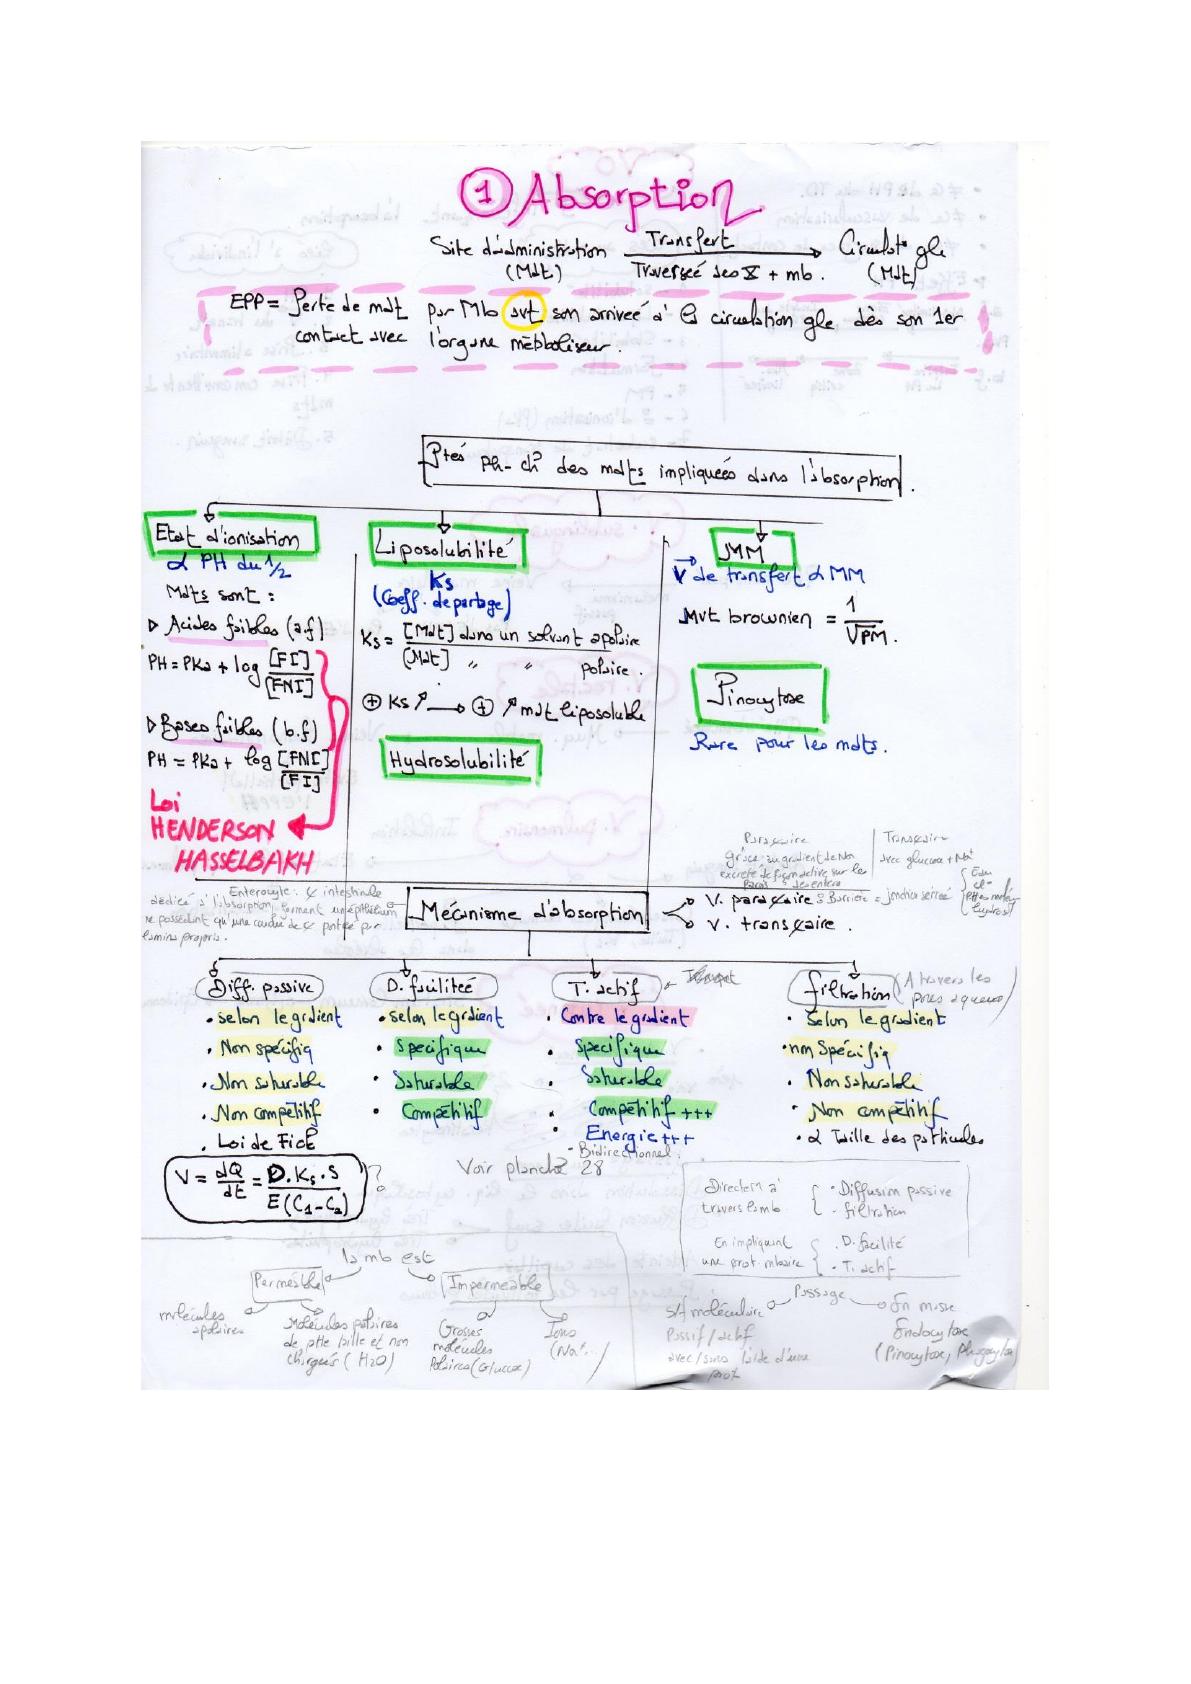 ① Absorption
Site d'administration Transfert Circulat° gle
(Mdt) Traversée des + mb. (Mdt)
EPP = Perte de mdt par Mb avt son arrivée à la circulation gle dès son 1er
contact avec l'organe métaboliseur.
Ptés ph-ch² des mdts impliquées dans l'absorption.
Etat d'ionisation
α PH du 1/2
Mdts sont :
▷ Acides faibles (a.f)
PH = PKa + log [FI]
[FNI]
▷ Bases faibles (b.f)
PH = PKa + log [FNI]
[FI]
Loi
HENDERSON
HASSELBAKH
Liposolubilité
Ks
(Coeff. de partage)
Ks = [Mdt] dans un solvant apolaire
[Mdt] " " polaire.
⊕ Ks ↗ → ⊕ ↗ mdt liposoluble
Hydrosolubilité
MM
V de transfert α MM
Mvt brownien = 1
√PM.
Pinocytose
Rare pour les mdts.
Enterocyte : intestinale
dédiée à l'absorption, forment un épithélium
ne possédant qu'une couche de portée par
lamina propria.
Mécanisme d'absorption
grâce au gradient de Na
excrété de façon active sur les
avec glucose + Na⁺
V. : Barrière = jonction serrée
V.
Eau
Cl-
Diff. passive
• selon le grdient
• Non spécifiq
• Non saturable
• Non compétitif
• Loi de Fick
V = dQ = D.Ks.S
dt E(C1-C2) ?
D. facilitée
• selon le grdient
• Spécifique
• Saturable
• Compétitif
T. actif
• Contre le gradient
• Spécifique
• Saturable
• Compétitif +++
• Energie +++
- Bidirectionnel.
filtration (A travers les
pores aqueux)
• Selon le gradient
• nm Spécifiq
• Non saturable
• Non compétitif
• α Taille des particules
Voir planche 28
Directem à
travers la mb
• Diffusion passive
• filtration
En impliquant
une prot. mbaire
. D. facilité
. T. actif
la mb est
Perméable
Imperméable
molécules
apolaires
Molécules polaires
de ptte taille et non
chargées (H2O)
Grosses
molécules
Polaires (Glucose)
Ions
(Na⁺...)
Passage
moléculaire
Passif / actif
avec/sans l'aide d'une
prot
En masse
Endocytose
(Pinocytose, Phagocytose)